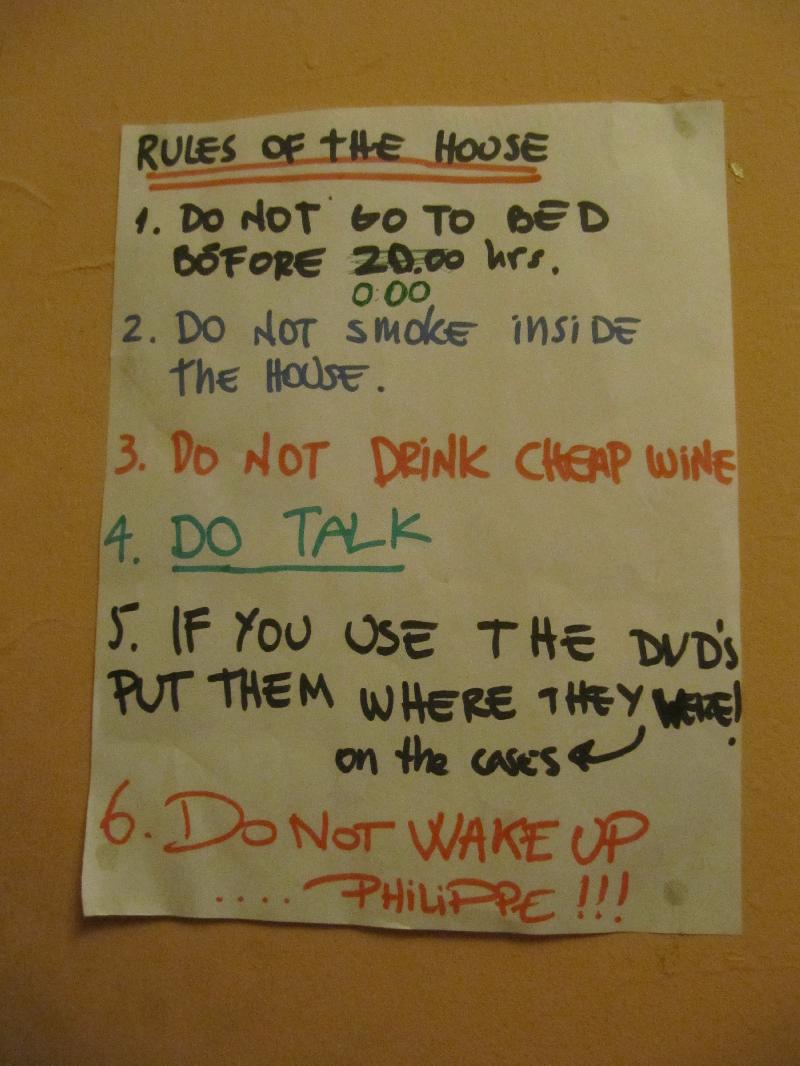 RULES OF THE HOUSE
1. DO NOT GO TO BED
BEFORE 20.00 hrs.
0:00
2. DO NOT SMOKE INSIDE
THE HOUSE.
3. DO NOT DRINK CHEAP WINE
4. DO TALK
5. IF YOU USE THE DVD'S
PUT THEM WHERE THEY WERE!
on the cases
6. DO NOT WAKE UP
.... PHILIPPE !!!